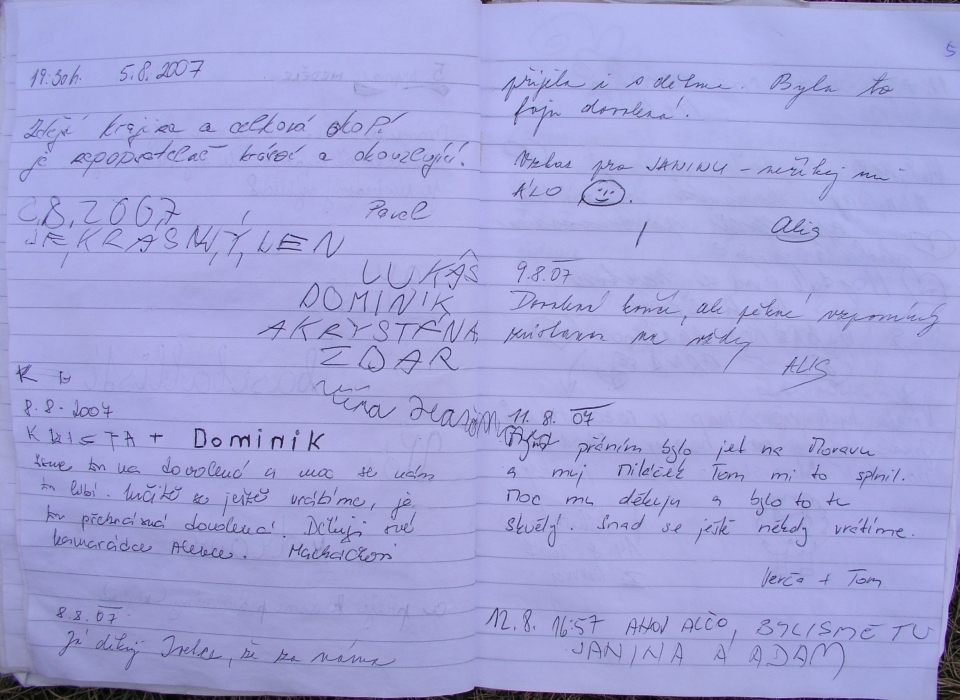 19:30h. 5.8.2007
Zdejší krajina a celková okolí
je nepopiratelně krásná a okouzlující!
Pavel
8.8.2007
JE,KRÁSNÝ,DEN
LUKÁŠ
DOMINIK
AKRYSTÝNA
ZDAR
K D
8.8.2007
KRISTA + Dominik
Jsme tu na dovolené a moc se nám
tu líbí. Určitě se ještě vrátíme, je
tu překrásná dovolená. Děkuji své
kamarádce Alence.
8.8.07
Já děkuji, že za náma
5
přijela i s dětma. Byla to
fajn dovolená!
Vzkaz pro JANINU – neříkej mi
ÁLO
Alis
9.8.07
Dovolená končí, ale pěkné vzpomínky
zůstanou na vždy
ALIS
11.8.07
přáním bylo jet na Moravu
a muj Miláček Tom mi to splnil.
Moc mu děkuju a bylo to tu
skvělý. Snad se ještě někdy vrátíme.
Verča + Tom
12.8. 16:57 AHOJ ALČO, BYLI SME TU
JANINA A ADAM